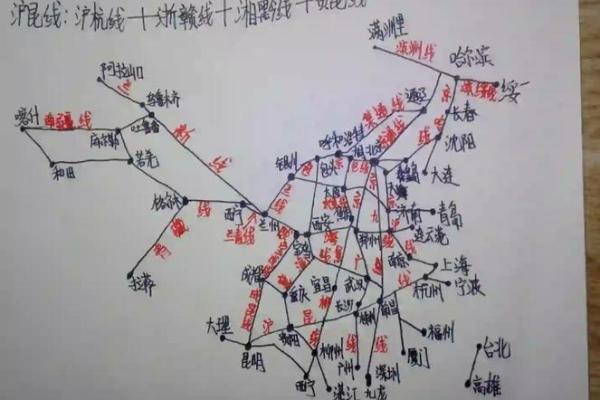 沪昆线：沪杭线＋浙赣线＋湘黔线＋贵昆线
满洲里
滨洲线
哈尔滨
绥
阿拉山口
乌鲁木齐
通辽
集通线
长春
喀什
南疆线
吐鲁番
库尔勒
新
线
呼和浩特
沈阳
和田
若羌
银川
包头
大连
格尔木
西宁
兰青线
兰州
西安
济南
青岛
连云港
青藏线
宝鸡
郑州
拉萨
成都
重庆
宜昌
武汉
长沙
上海
杭州
宁波
大理
沪
昆
贵阳
株州
南昌
昆明
柳州
福州
广州
厦门
台北
西宁
湛江
九龙
深圳
高雄